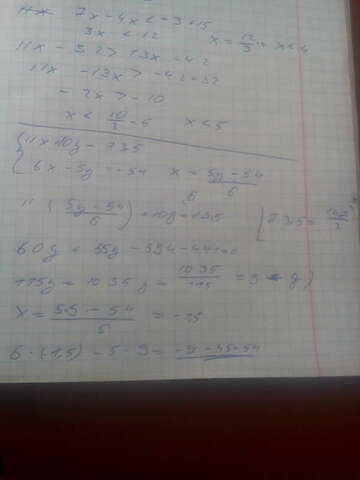 7x - 4x < -3 + 15
3x < 12 x = 12/3 = x < 4
11x - 32 > 13x - 42
11x - 13x > -42 + 32
- 2x > - 10
x < 10/2 = 5 x < 5
11x + 10y = 73.5
6x - 5y = -54 x = 5y - 54 / 6
11 (5y - 54 / 6) + 10y = 73.5
60y + 55y - 594 = 441
115y = 1035 y = 1035/115 = 9
x = 5·9 - 54 / 6 = -1.5
6 · (-1,5) - 5 · 9 = -9 - 45 = -54